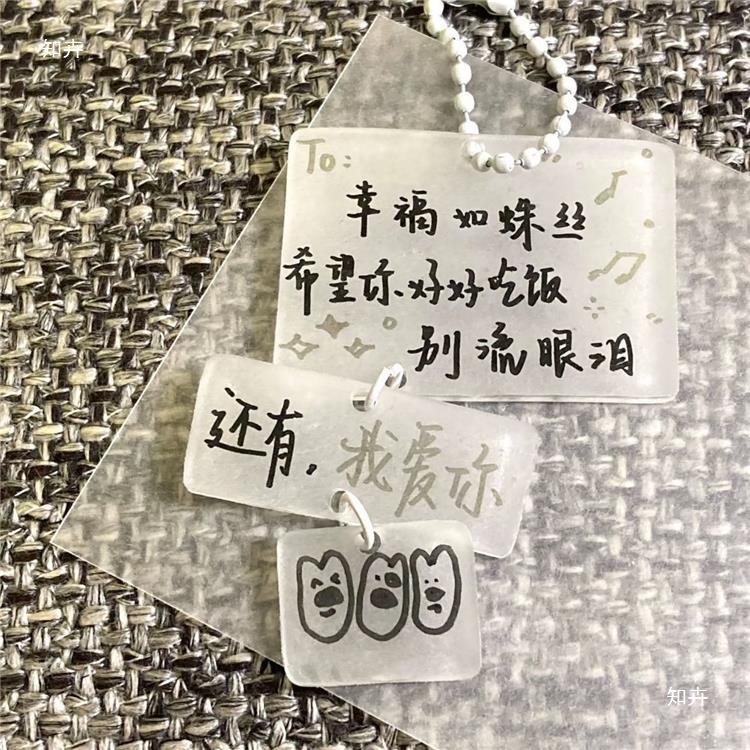 知卉
To:
幸福如蛛丝
希望你好好吃饭
别流眼泪
还有,我爱你
知卉